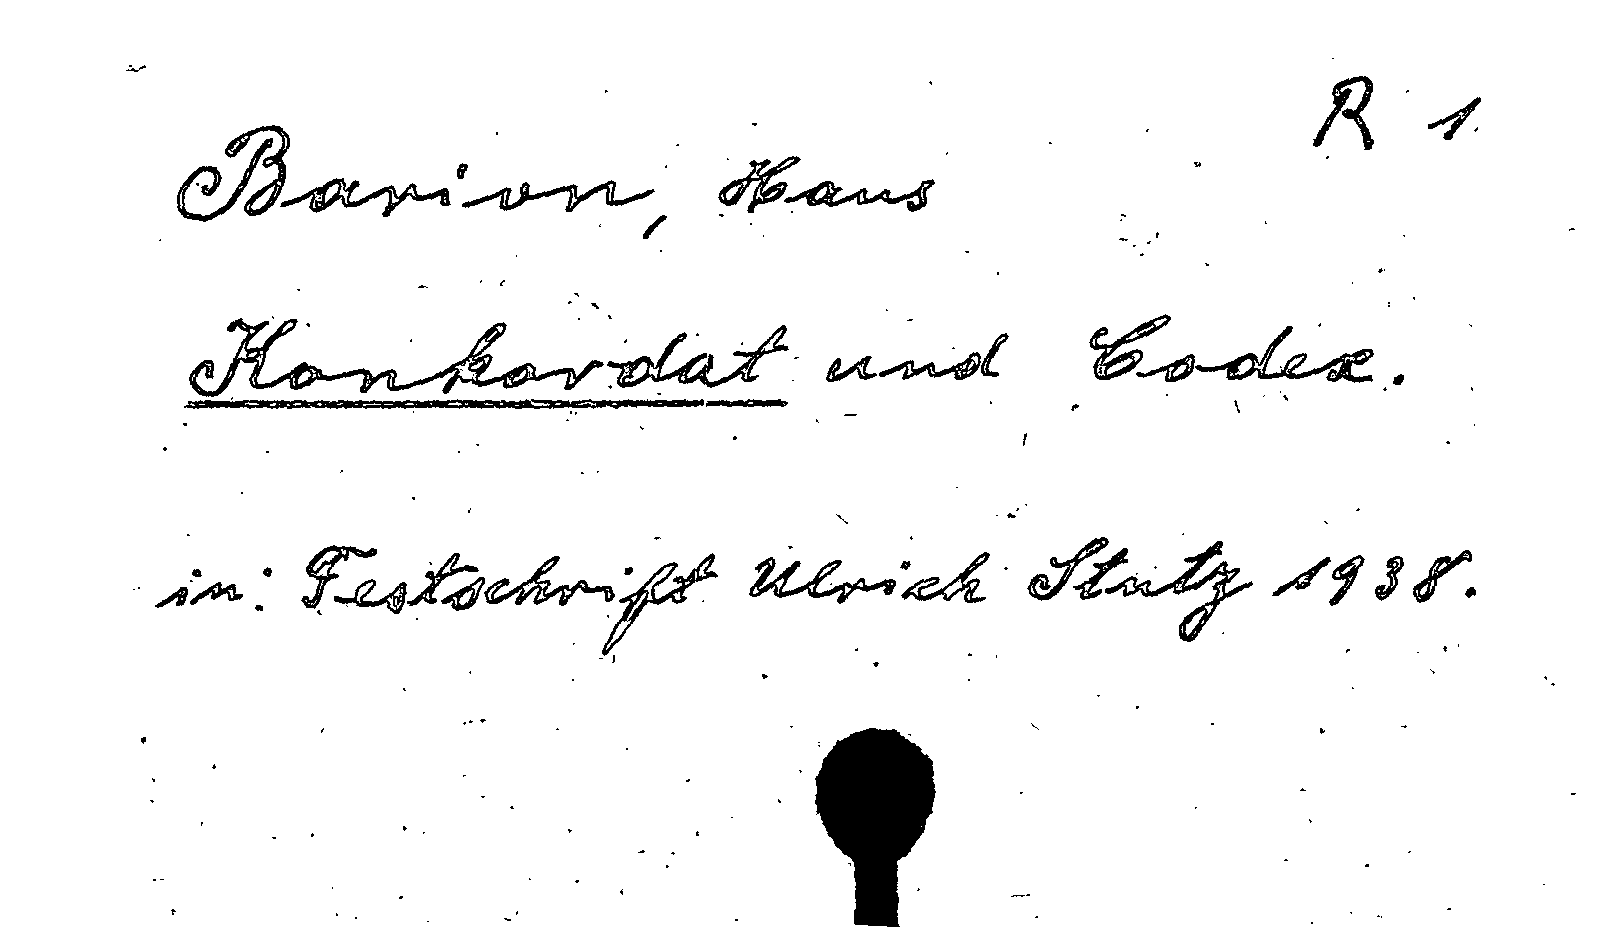 R 1
Barion, Hans
Konkordat und Codex.
in: Festschrift Ulrich Stutz 1938.